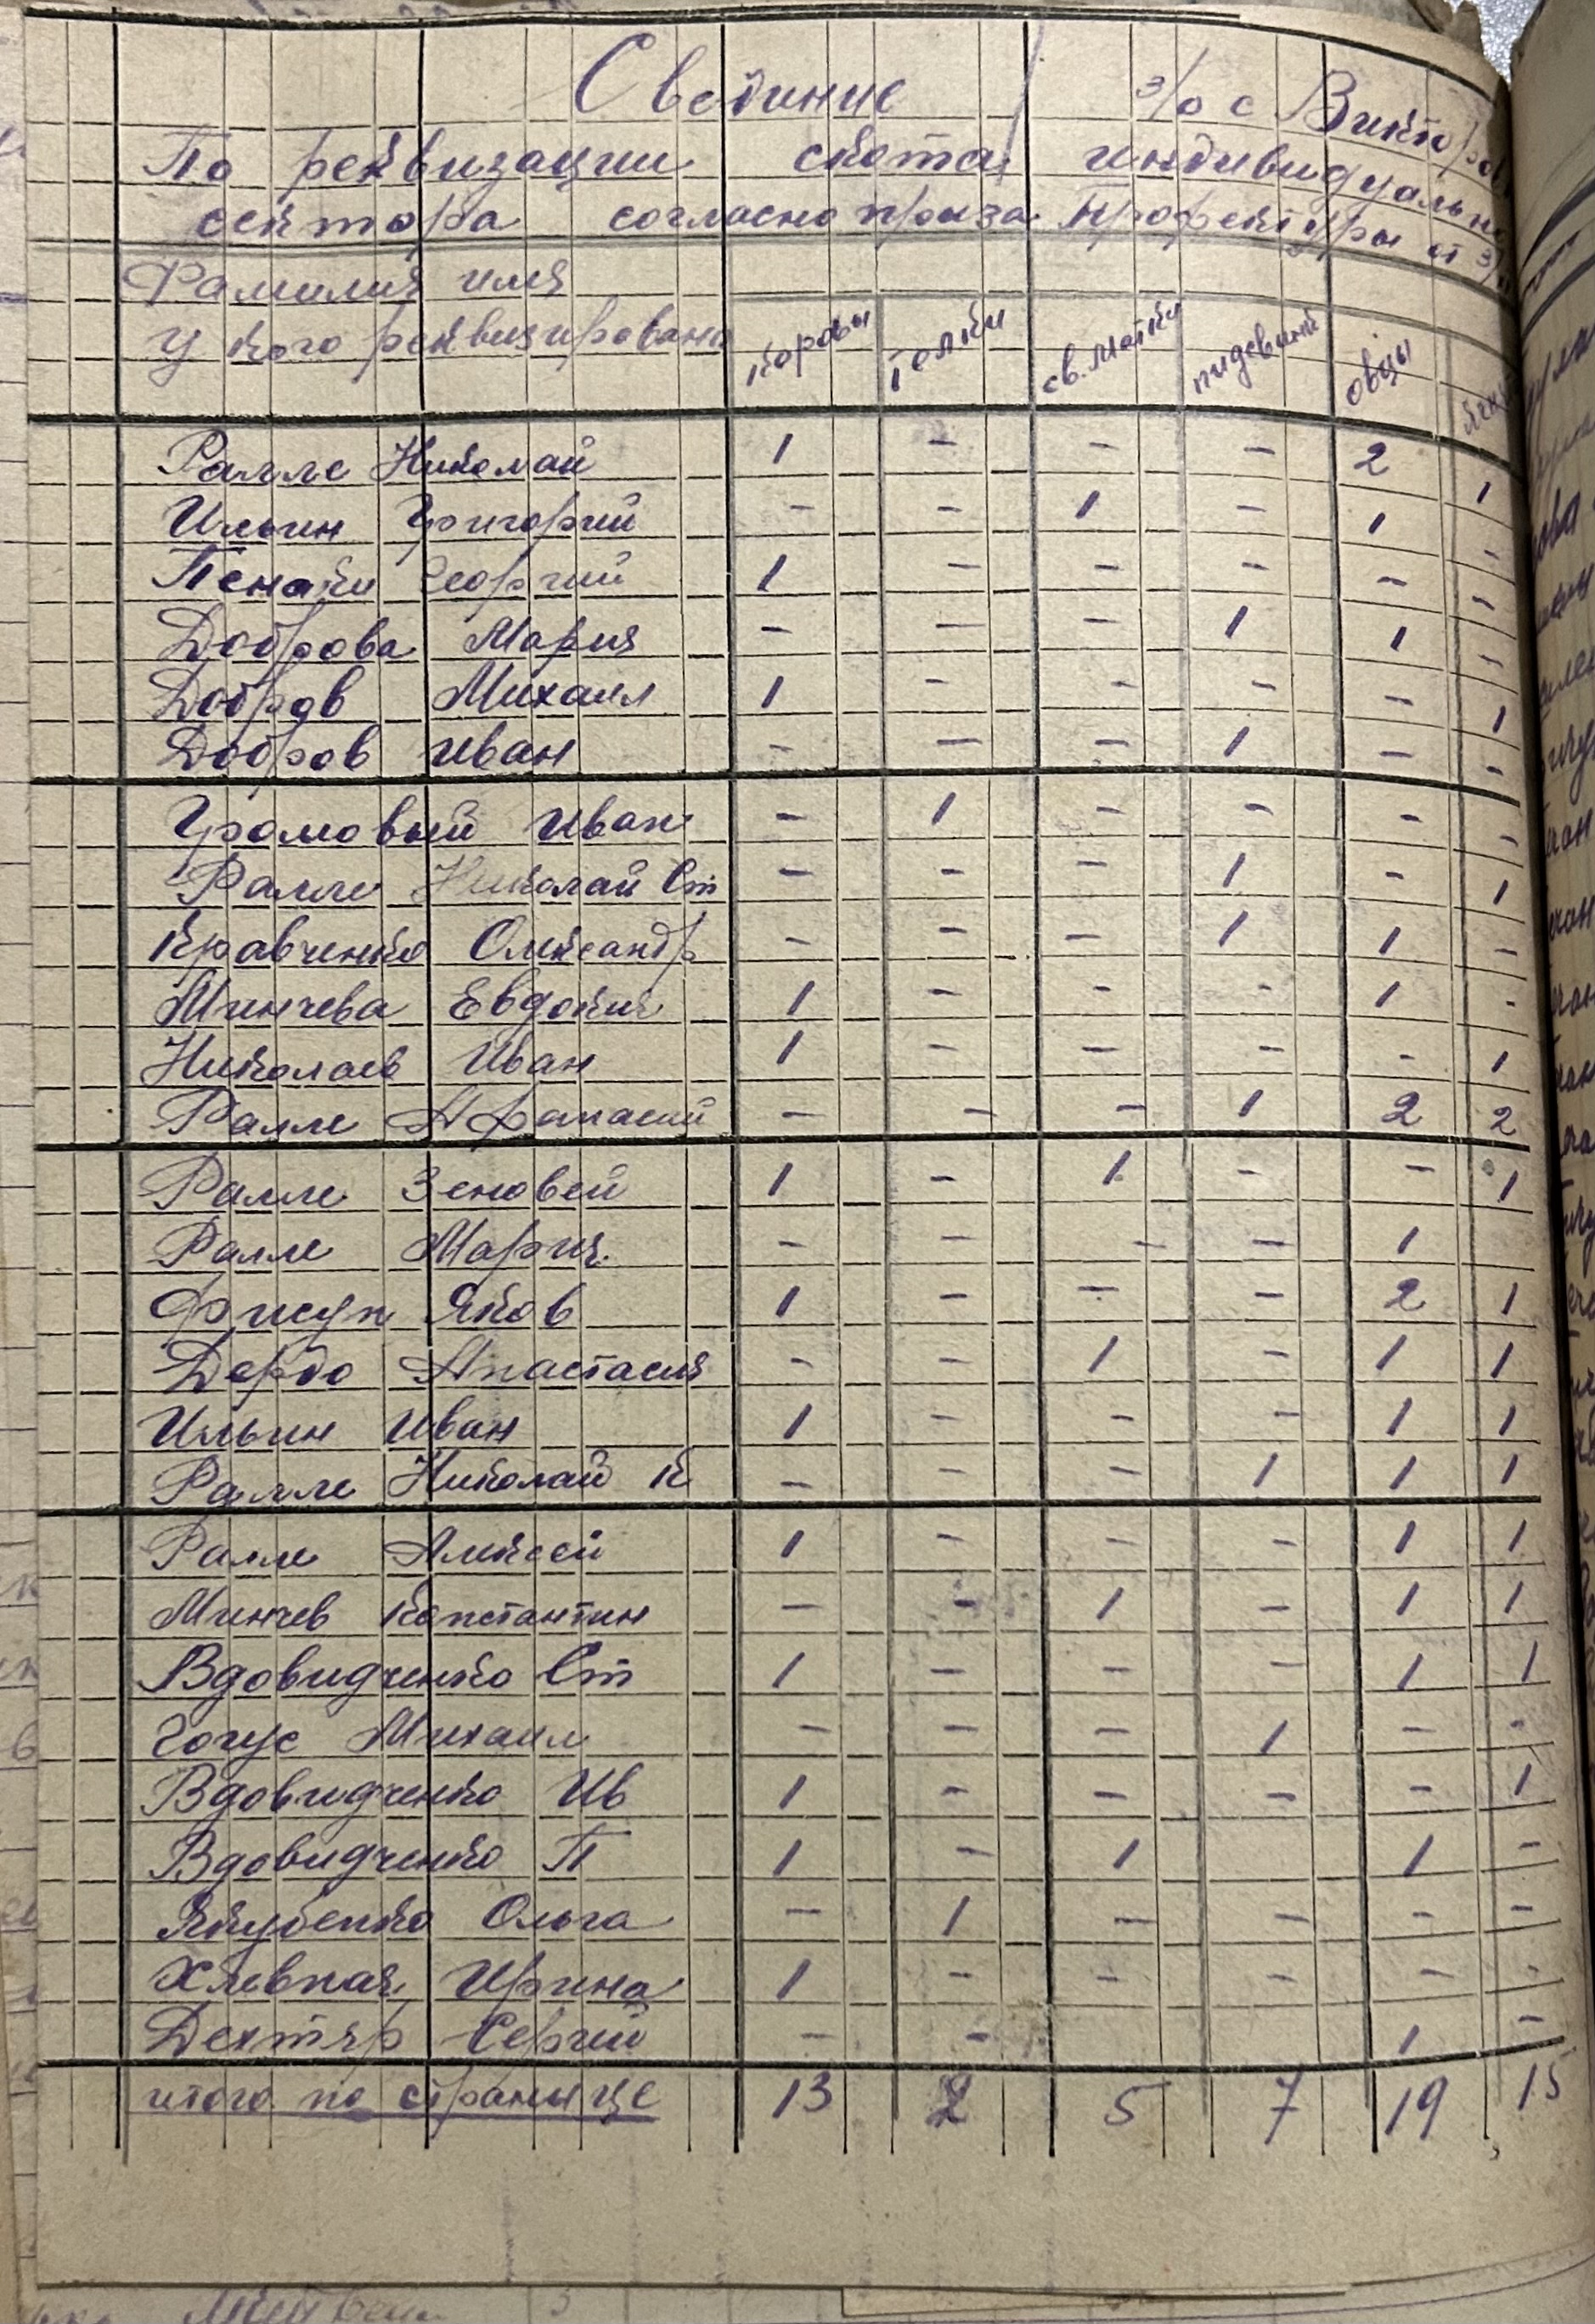 Свединие з/о с Викторов
По реквизации скота индивидуально
сектора согласно приза Префектуры от
Фамилия имя
у кого реквизировано коровы телки св. матки пидсвинк овцы ягн
Ралле Николай 1 – – – 2 1
Ильин Григорий – – 1 – 1 –
Пенаки Георгий 1 – – – – –
Доброва Мария – – – 1 1 –
Добров Михаил 1 – – – – 1
Добров Иван – – – 1 – –
Громовый Иван – 1 – – – –
Ралле Николай Ст – – – 1 – 1
Кравченко Олександр – – – 1 1 –
Минчева Евдокия 1 – – – 1 –
Николаев Иван 1 – – – – 1
Ралле Афанасий – – – 1 2 2
Ралле Зеновей 1 – 1 – – 1
Ралле Мария – – – – 1
Фисун Яков 1 – – – 2 1
Дердо Анастасия – – 1 – 1 1
Ильин Иван 1 – – – 1 1
Ралле Николай К – – – 1 1 1
Ралле Алексей 1 – – – 1 1
Минчев Константин – – 1 – 1 1
Вдовидченко Ст 1 – – – 1 1
Гогус Михаил – – – 1 – –
Вдовидченко Ив 1 – – – – 1
Вдовидченко П 1 – 1 1 –
Якубенко Ольга – 1 – – – –
Хлевная Ирина 1 – – – – –
Дехтяр Сергий – – 1 –
итого по странице 13 2 5 7 19 15